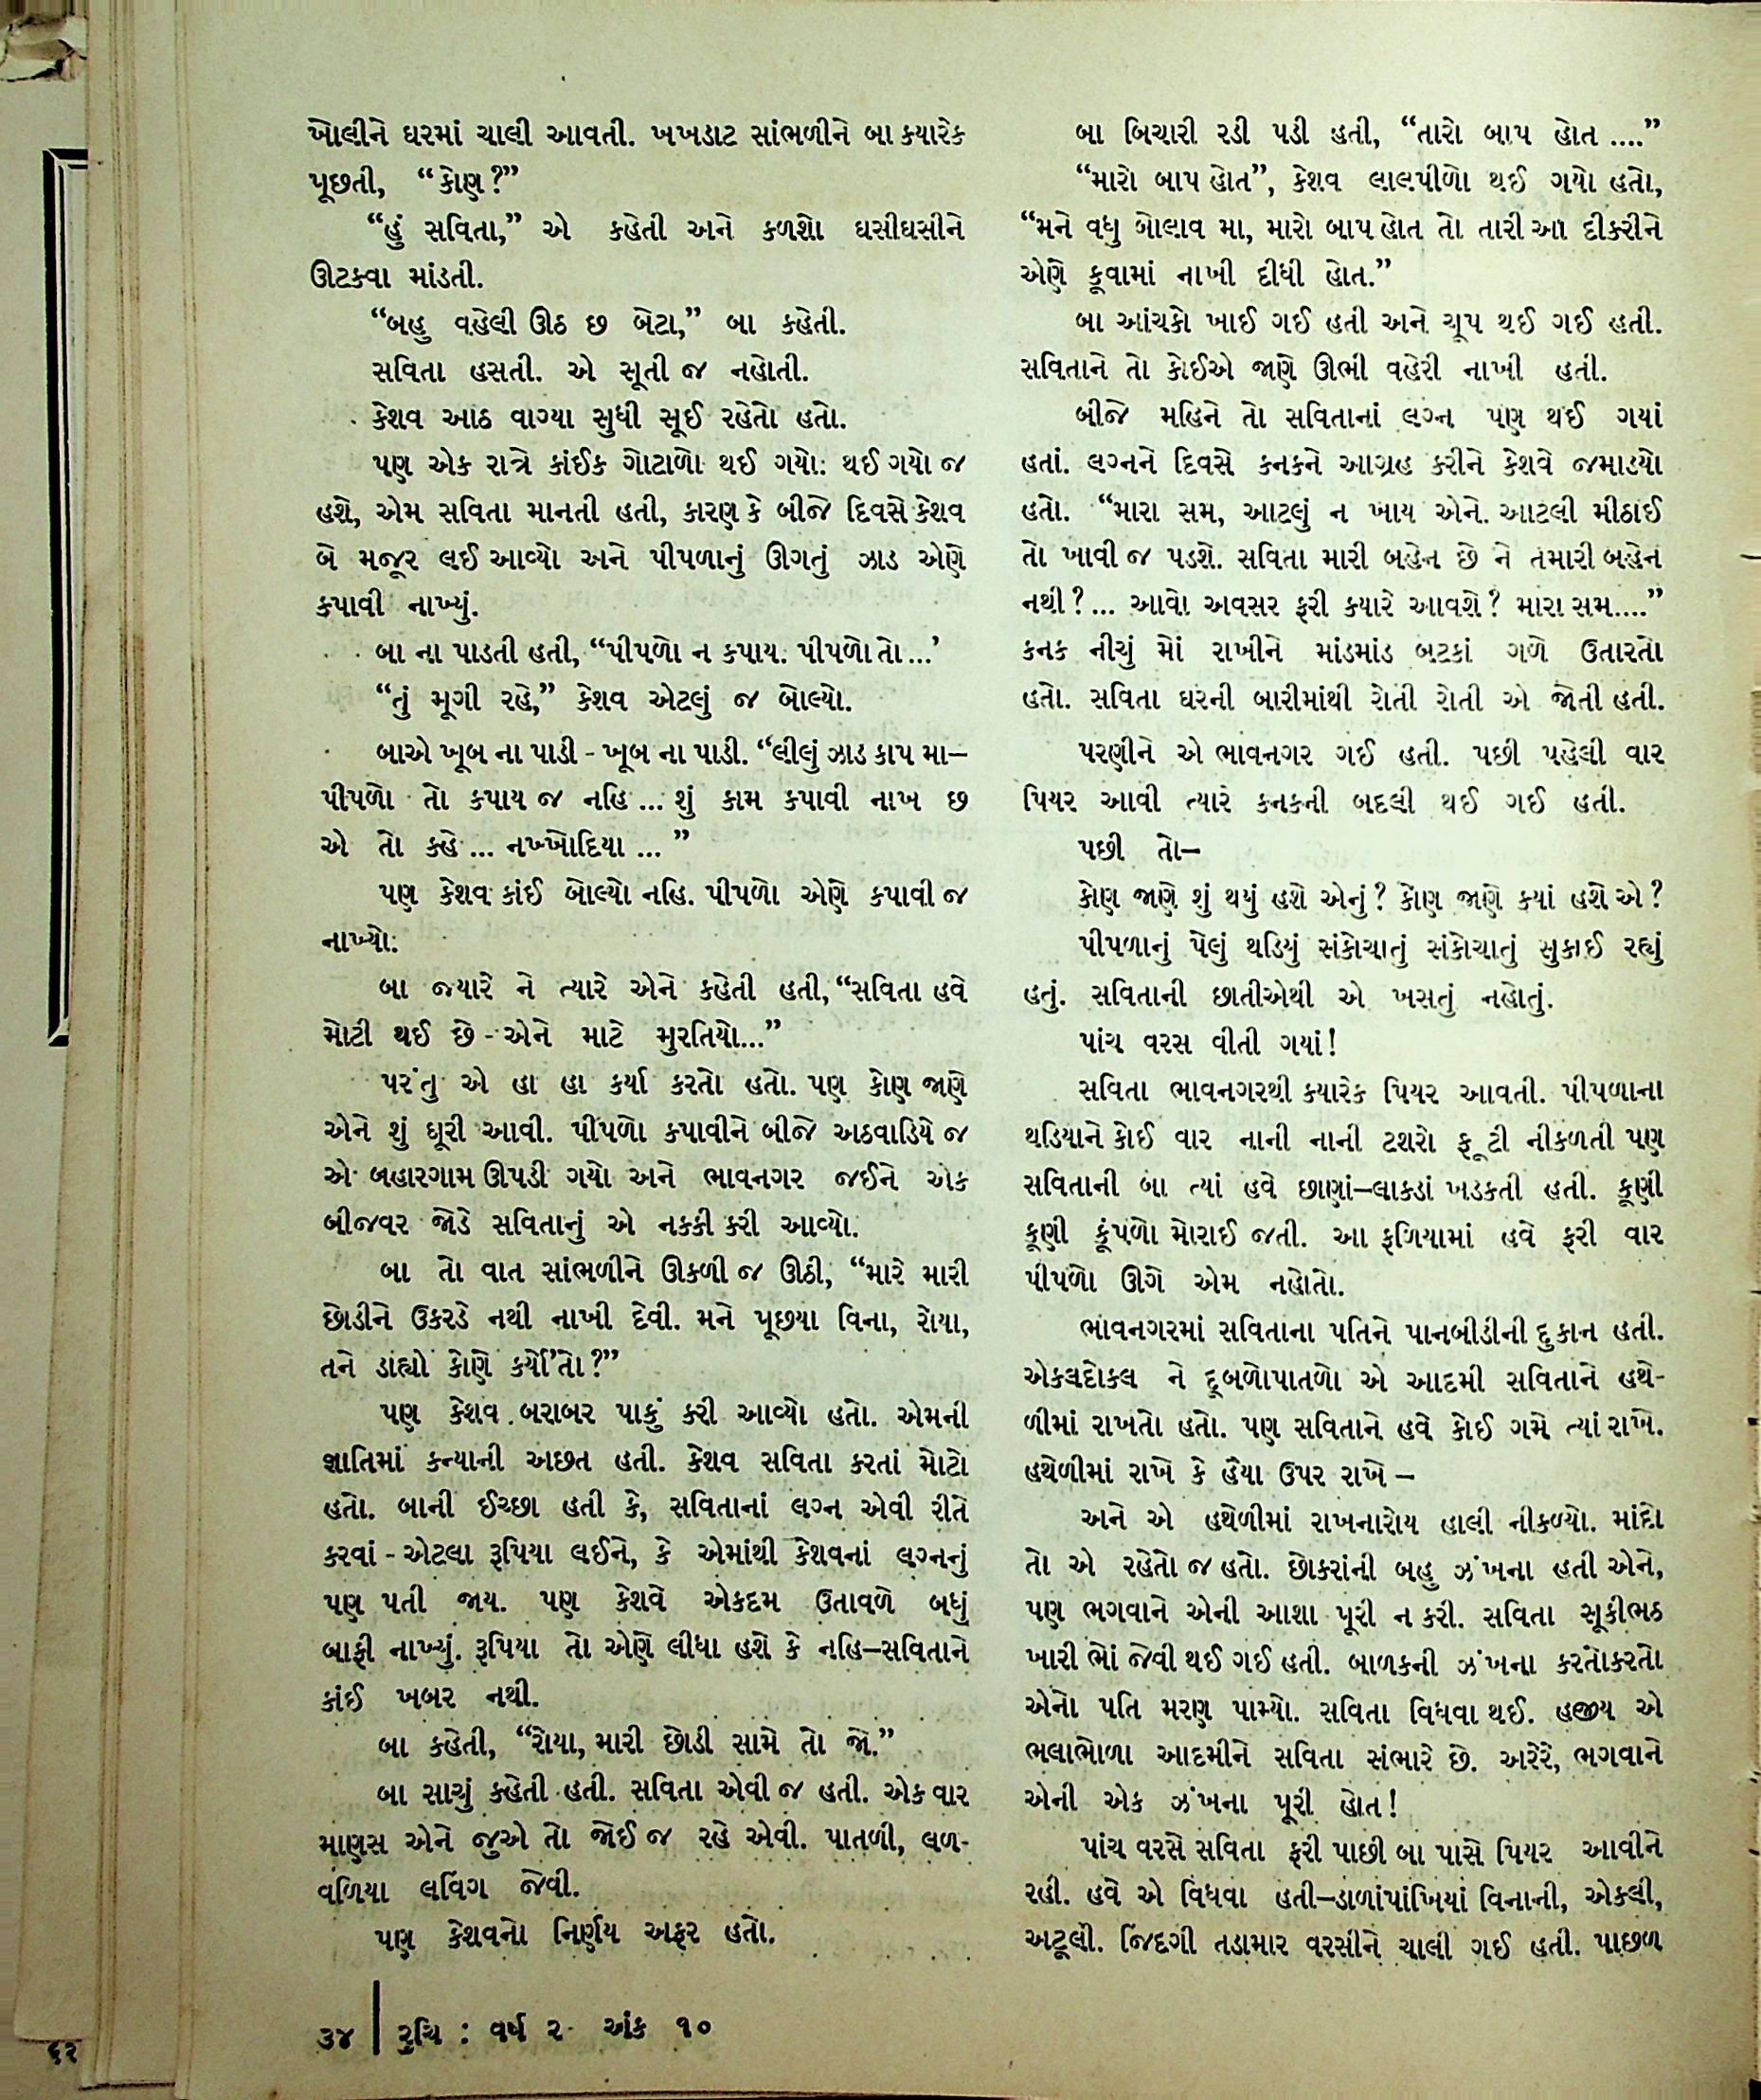 ખોલીને ઘરમાં ચાલી આવતી. ખખડાટ સાંભળીને બા કયારેક
પૂછતી, “કોણ?”
“હું સવિતા,” એ કહેતી અને કળશો ઘસીઘસીને
ઊટકવા માંડતી.
“બહુ વહેલી ઊઠ છ બેટા,” બા કહેતી.
સવિતા હસતી. એ સૂતી જ નહોતી.
કેશવ આઠ વાગ્યા સુધી સૂઈ રહેતો હતો.
પણ એક રાત્રે કાંઈક ગોટાળો થઈ ગયો: થઈ ગયો જ
હશે, એમ સવિતા માનતી હતી, કારણ કે બીજે દિવસે કેશવ
બે મજૂર લઈ આવ્યો અને પીપળાનું ઊગતું ઝાડ એણે
કપાવી નાખ્યું.
બા ના પાડતી હતી, “પીપળો ન કપાય. પીપળો તો...’
“તું મૂગી રહે,” કેશવ એટલું જ બોલ્યો.
બાએ ખૂબ ના પાડી - ખૂબ ના પાડી. “લીલું ઝાડ કાપ મા—
પીપળો તો કપાય જ નહિ... શું કામ કપાવી નાખ છ
એ તો કહે... નખ્ખોદિયા ...”
પણ કેશવ કાંઈ બોલ્યો નહિ. પીપળો એણે કપાવી જ
નાખ્યો.
બા જ્યારે ને ત્યારે એને કહેતી હતી, “સવિતા હવે
મોટી થઈ છે - એને માટે મુરતિયો...”
પરંતુ એ હા હા કર્યા કરતો હતો. પણ કોણ જાણે
એને શું ઘૂરી આવી. પીપળો કપાવીને બીજે અઠવાડિયે જ
એ બહારગામ ઊપડી ગયો અને ભાવનગર જઈને એક
બીજવર જોડે સવિતાનું એ નક્કી કરી આવ્યો.
બા તો વાત સાંભળીને ઊકળી જ ઊઠી, “મારે મારી
છોડીને ઉકરડે નથી નાખી દેવી. મને પૂછયા વિના, રોયા,
તને ડાહ્યો કોણે કર્યો’તો?”
પણ કેશવ બરાબર પાકું કરી આવ્યો હતો. એમની
જ્ઞાતિમાં કન્યાની અછત હતી. કેશવ સવિતા કરતાં મોટો
હતો. બાની ઈચ્છા હતી કે, સવિતાનાં લગ્ન એવી રીતે
કરવાં - એટલા રૂપિયા લઈને, કે એમાંથી કેશવનાં લગ્નનું
પણ પતી જાય. પણ કેશવે એકદમ ઉતાવળે બધું
બાફી નાખ્યું. રૂપિયા તો એણે લીધા હશે કે નહિ—સવિતાને
કાંઈ ખબર નથી.
બા કહેતી, “રોયા, મારી છોડી સામે તો જો.”
બા સાચું કહેતી હતી. સવિતા એવી જ હતી. એક વાર
માણસ એને જુએ તો જોઈ જ રહે એવી. પાતળી, લળ-
વળિયા લવિંગ જેવી.
પણ કેશવનો નિર્ણય અફર હતો.
બા બિચારી રડી પડી હતી, “તારો બાપ હોત ....”
“મારો બાપ હોત”, કેશવ લાલપીળો થઈ ગયો હતો,
“મને વધુ બોલાવ મા, મારો બાપ હોત તો તારી આ દીકરીને
એણે કૂવામાં નાખી દીધી હોત.”
બા આંચકો ખાઈ ગઈ હતી અને ચૂપ થઈ ગઈ હતી.
સવિતાને તો કોઈએ જાણે ઊભી વહેરી નાખી હતી.
બીજે મહિને તો સવિતાનાં લગ્ન પણ થઈ ગયાં
હતાં. લગ્નને દિવસે કનકને આગ્રહ કરીને કેશવે જમાડયો
હતો. “મારા સમ, આટલું ન ખાય એને. આટલી મીઠાઈ
તો ખાવી જ પડશે. સવિતા મારી બહેન છે ને તમારી બહેન
નથી?... આવો અવસર ફરી કયારે આવશે? મારા સમ....”
કનક નીચું મોં રાખીને માંડમાંડ બટકાં ગળે ઉતારતો
હતો. સવિતા ઘરની બારીમાંથી રોતી રોતી એ જોતી હતી.
પરણીને એ ભાવનગર ગઈ હતી. પછી પહેલી વાર
પિયર આવી ત્યારે કનકની બદલી થઈ ગઈ હતી.
પછી તો—
કોણ જાણે શું થયું હશે એનું? કોણ જાણે કયાં હશે એ?
પીપળાનું પેલું થડિયું સંકોચાતું સંકોચાતું સુકાઈ રહ્યું
હતું. સવિતાની છાતીએથી એ ખસતું નહોતું.
પાંચ વરસ વીતી ગયાં!
સવિતા ભાવનગરથી કયારેક પિયર આવતી. પીપળાના
થડિયાને કોઈ વાર નાની નાની ટશરો ફૂટી નીકળતી પણ
સવિતાની બા ત્યાં હવે છાણાં—લાકડાં ખડકતી હતી. કૂણી
કૂણી કૂંપળો મોરાઈ જતી. આ ફળિયામાં હવે ફરી વાર
પીપળો ઊગે એમ નહોતો.
ભાવનગરમાં સવિતાના પતિને પાનબીડીની દુકાન હતી.
એકલદોકલ ને દૂબળોપાતળો એ આદમી સવિતાને હથે-
ળીમાં રાખતો હતો. પણ સવિતાને હવે કોઈ ગમે ત્યાં રાખે.
હથેળીમાં રાખે કે હૈયા ઉપર રાખે —
અને એ હથેળીમાં રાખનારોય હાલી નીકળ્યો. માંદો
તો એ રહેતો જ હતો. છોકરાંની બહુ ઝંખના હતી એને,
પણ ભગવાને એની આશા પૂરી ન કરી. સવિતા સૂકીભઠ
ખારી ભોં જેવી થઈ ગઈ હતી. બાળકની ઝંખના કરતોકરતો
એનો પતિ મરણ પામ્યો. સવિતા વિધવા થઈ. હજીય એ
ભલાભોળા આદમીને સવિતા સંભારે છે. અરેરે, ભગવાને
એની એક ઝંખના પૂરી હોત!
પાંચ વરસે સવિતા ફરી પાછી બા પાસે પિયર આવીને
રહી. હવે એ વિધવા હતી—ડાળાંપાંખિયાં વિનાની, એકલી,
અટૂલી. જિંદગી તડામાર વરસીને ચાલી ગઈ હતી. પાછળ
૩૪ | રુચિ : વર્ષ ૨ અંક ૧૦
૬૨